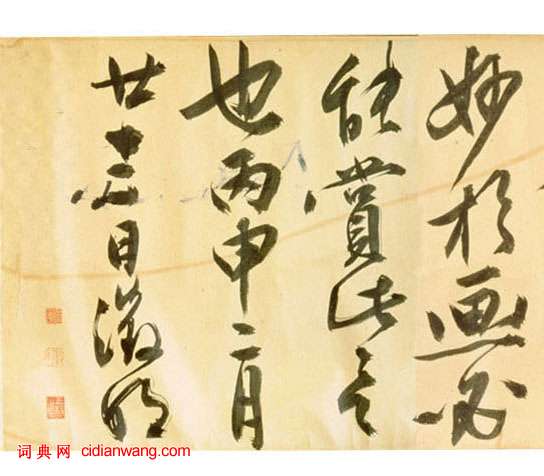 妙於画必
能賞此言
也丙申二月
廿日徵明
词典网 cidianwang.com